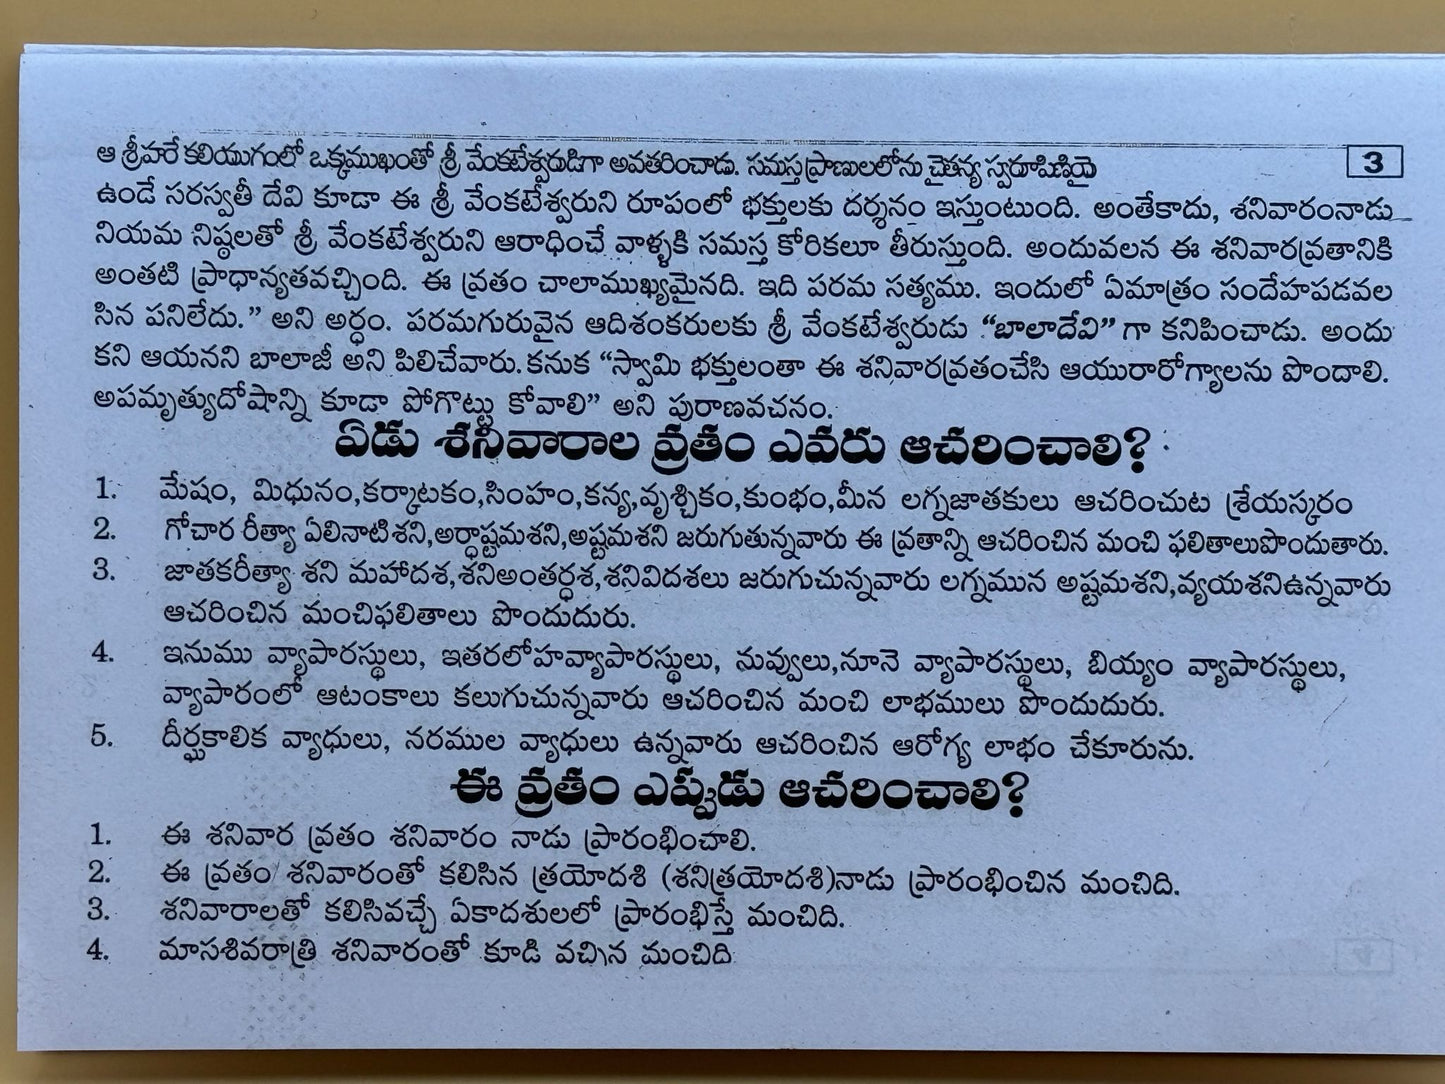 ఆ శ్రీహరే కలియుగంలో ఒక్కముఖంతో శ్రీ వేంకటేశ్వరుడిగా అవతరించాడు. సమస్తప్రాణులలోను చైతన్య స్వరూపిణియై
3
ఉండే సరస్వతీ దేవి కూడా ఈ శ్రీ వేంకటేశ్వరుని రూపంలో భక్తులకు దర్శనం ఇస్తుంటుంది. అంతేకాదు, శనివారంనాడు
నియమ నిష్ఠలతో శ్రీ వేంకటేశ్వరుని ఆరాధించే వాళ్ళకి సమస్త కోరికలూ తీరుస్తుంది. అందువలన ఈ శనివారవ్రతానికి
అంతటి ప్రాధాన్యతవచ్చింది. ఈ వ్రతం చాలాముఖ్యమైనది. ఇది పరమ సత్యము. ఇందులో ఏమాత్రం సందేహపడవల
సిన పనిలేదు.” అని అర్ధం. పరమగురువైన ఆదిశంకరులకు శ్రీ వేంకటేశ్వరుడు “బాలాదేవి” గా కనిపించాడు. అందు
కని ఆయనని బాలాజీ అని పిలిచేవారు. కనుక “స్వామి భక్తులంతా ఈ శనివారవ్రతంచేసి ఆయురారోగ్యాలను పొందాలి.
అపమృత్యుదోషాన్ని కూడా పోగొట్టు కోవాలి” అని పురాణవచనం.
ఏడు శనివారాల వ్రతం ఎవరు ఆచరించాలి?
1. మేషం, మిధునం,కర్కాటకం,సింహం,కన్య,వృశ్చికం,కుంభం,మీన లగ్నజాతకులు ఆచరించుట శ్రేయస్కరం
2. గోచార రీత్యా ఏలినాటిశని,అర్ధాష్టమశని,అష్టమశని జరుగుతున్నవారు ఈ వ్రతాన్ని ఆచరించిన మంచి ఫలితాలుపొందుతారు.
3. జాతకరీత్యా శని మహాదశ,శనిఅంతర్ధశ,శనివిదశలు జరుగుచున్నవారు లగ్నమున అష్టమశని,వ్యయశనిఉన్నవారు
ఆచరించిన మంచిఫలితాలు పొందుదురు.
4. ఇనుము వ్యాపారస్థులు, ఇతరలోహవ్యాపారస్థులు, నువ్వులు,నూనె వ్యాపారస్థులు, బియ్యం వ్యాపారస్థులు,
వ్యాపారంలో ఆటంకాలు కలుగుచున్నవారు ఆచరించిన మంచి లాభములు పొందుదురు.
5. దీర్ఘకాలిక వ్యాధులు, నరముల వ్యాధులు ఉన్నవారు ఆచరించిన ఆరోగ్య లాభం చేకూరును.
ఈ వ్రతం ఎప్పుడు ఆచరించాలి?
1. ఈ శనివార వ్రతం శనివారం నాడు ప్రారంభించాలి.
2. ఈ వ్రతం శనివారంతో కలిసిన త్రయోదశి (శనిత్రయోదశి)నాడు ప్రారంభించిన మంచిది.
3. శనివారాలతో కలిసివచ్చే ఏకాదశులలో ప్రారంభిస్తే మంచిది.
4. మాసశివరాత్రి శనివారంతో కూడి వచ్చిన మంచిది